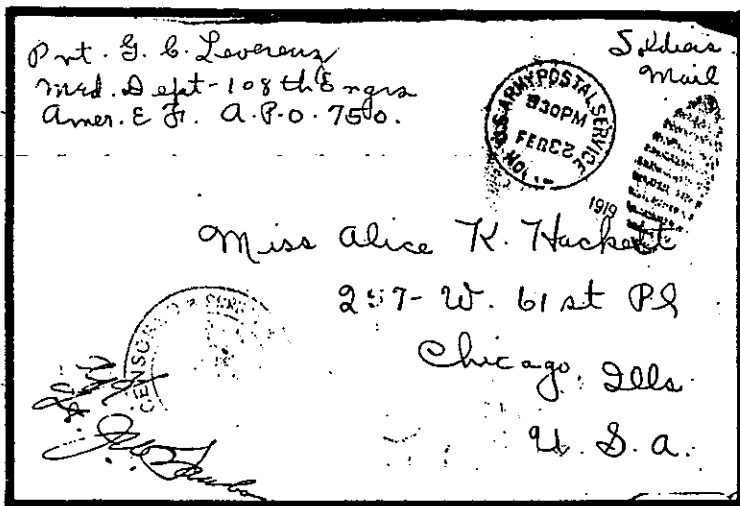 Pvt. G. C. Leverenz
Med. Dept-108th Engrs
Amer. E. F. A.P.O. 750.
Soldiers
Mail
U.S. ARMY POSTAL SERVICE
830PM
FEB
1919
Miss Alice K. Hackett
257-W. 61st Pl
Chicago, Ills.
U. S. A.
CENSORED